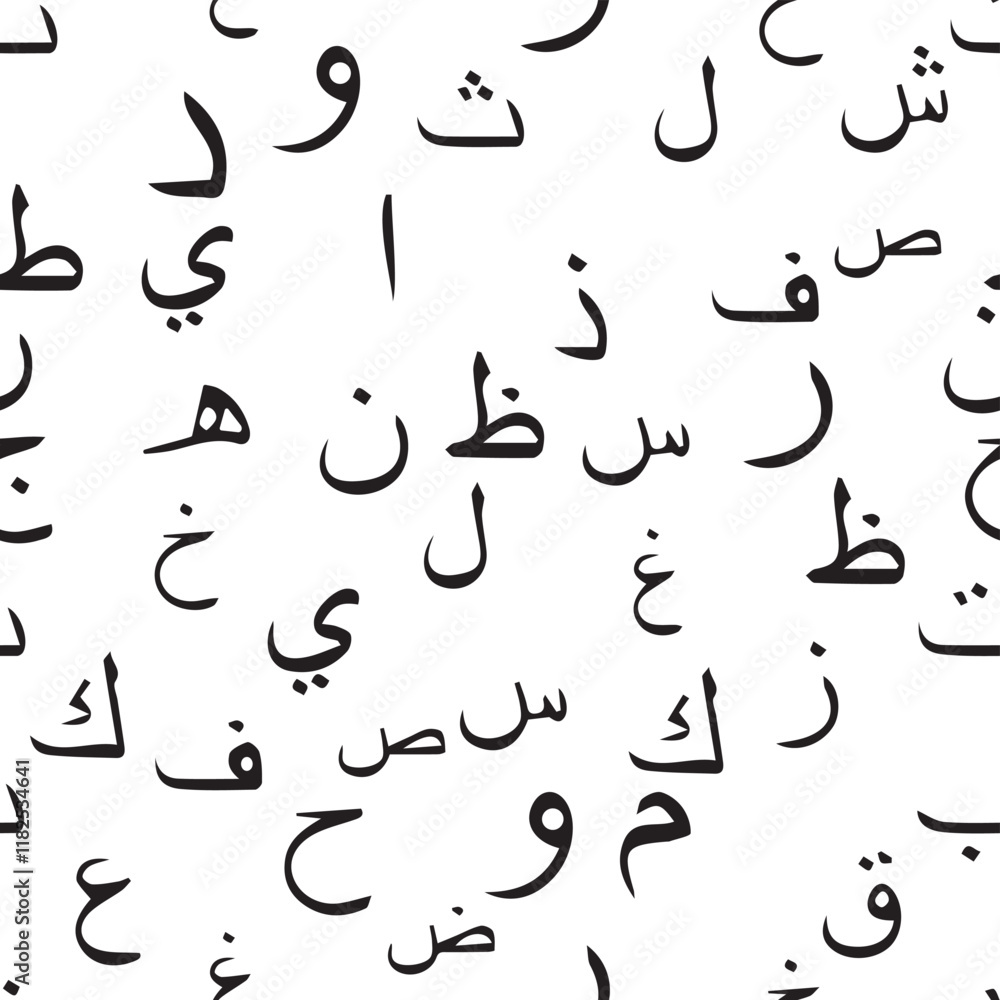 و ث ل ش
د
ط ي ا ز ف ص
ر ه ن ظ س ر
ج خ ل غ ظ
ي ت
ك ف ص س ك ز
ح و م ب
ع ض ق
غ
Adobe Stock | #1182534641